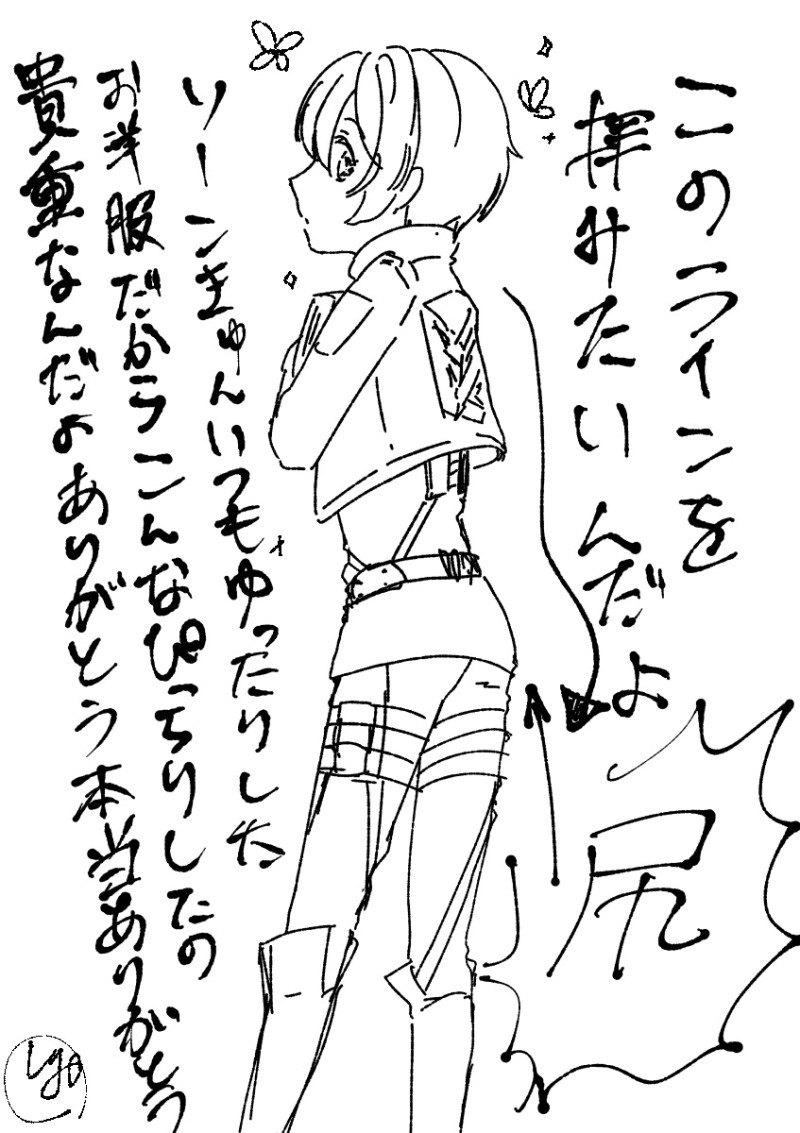 このラインを
拝みたいんだよ
尻
りーんきゅんいつもゆったりした
お洋服だからこんなぴっちりしたの
貴重なんだよありがとう本当ありがとう